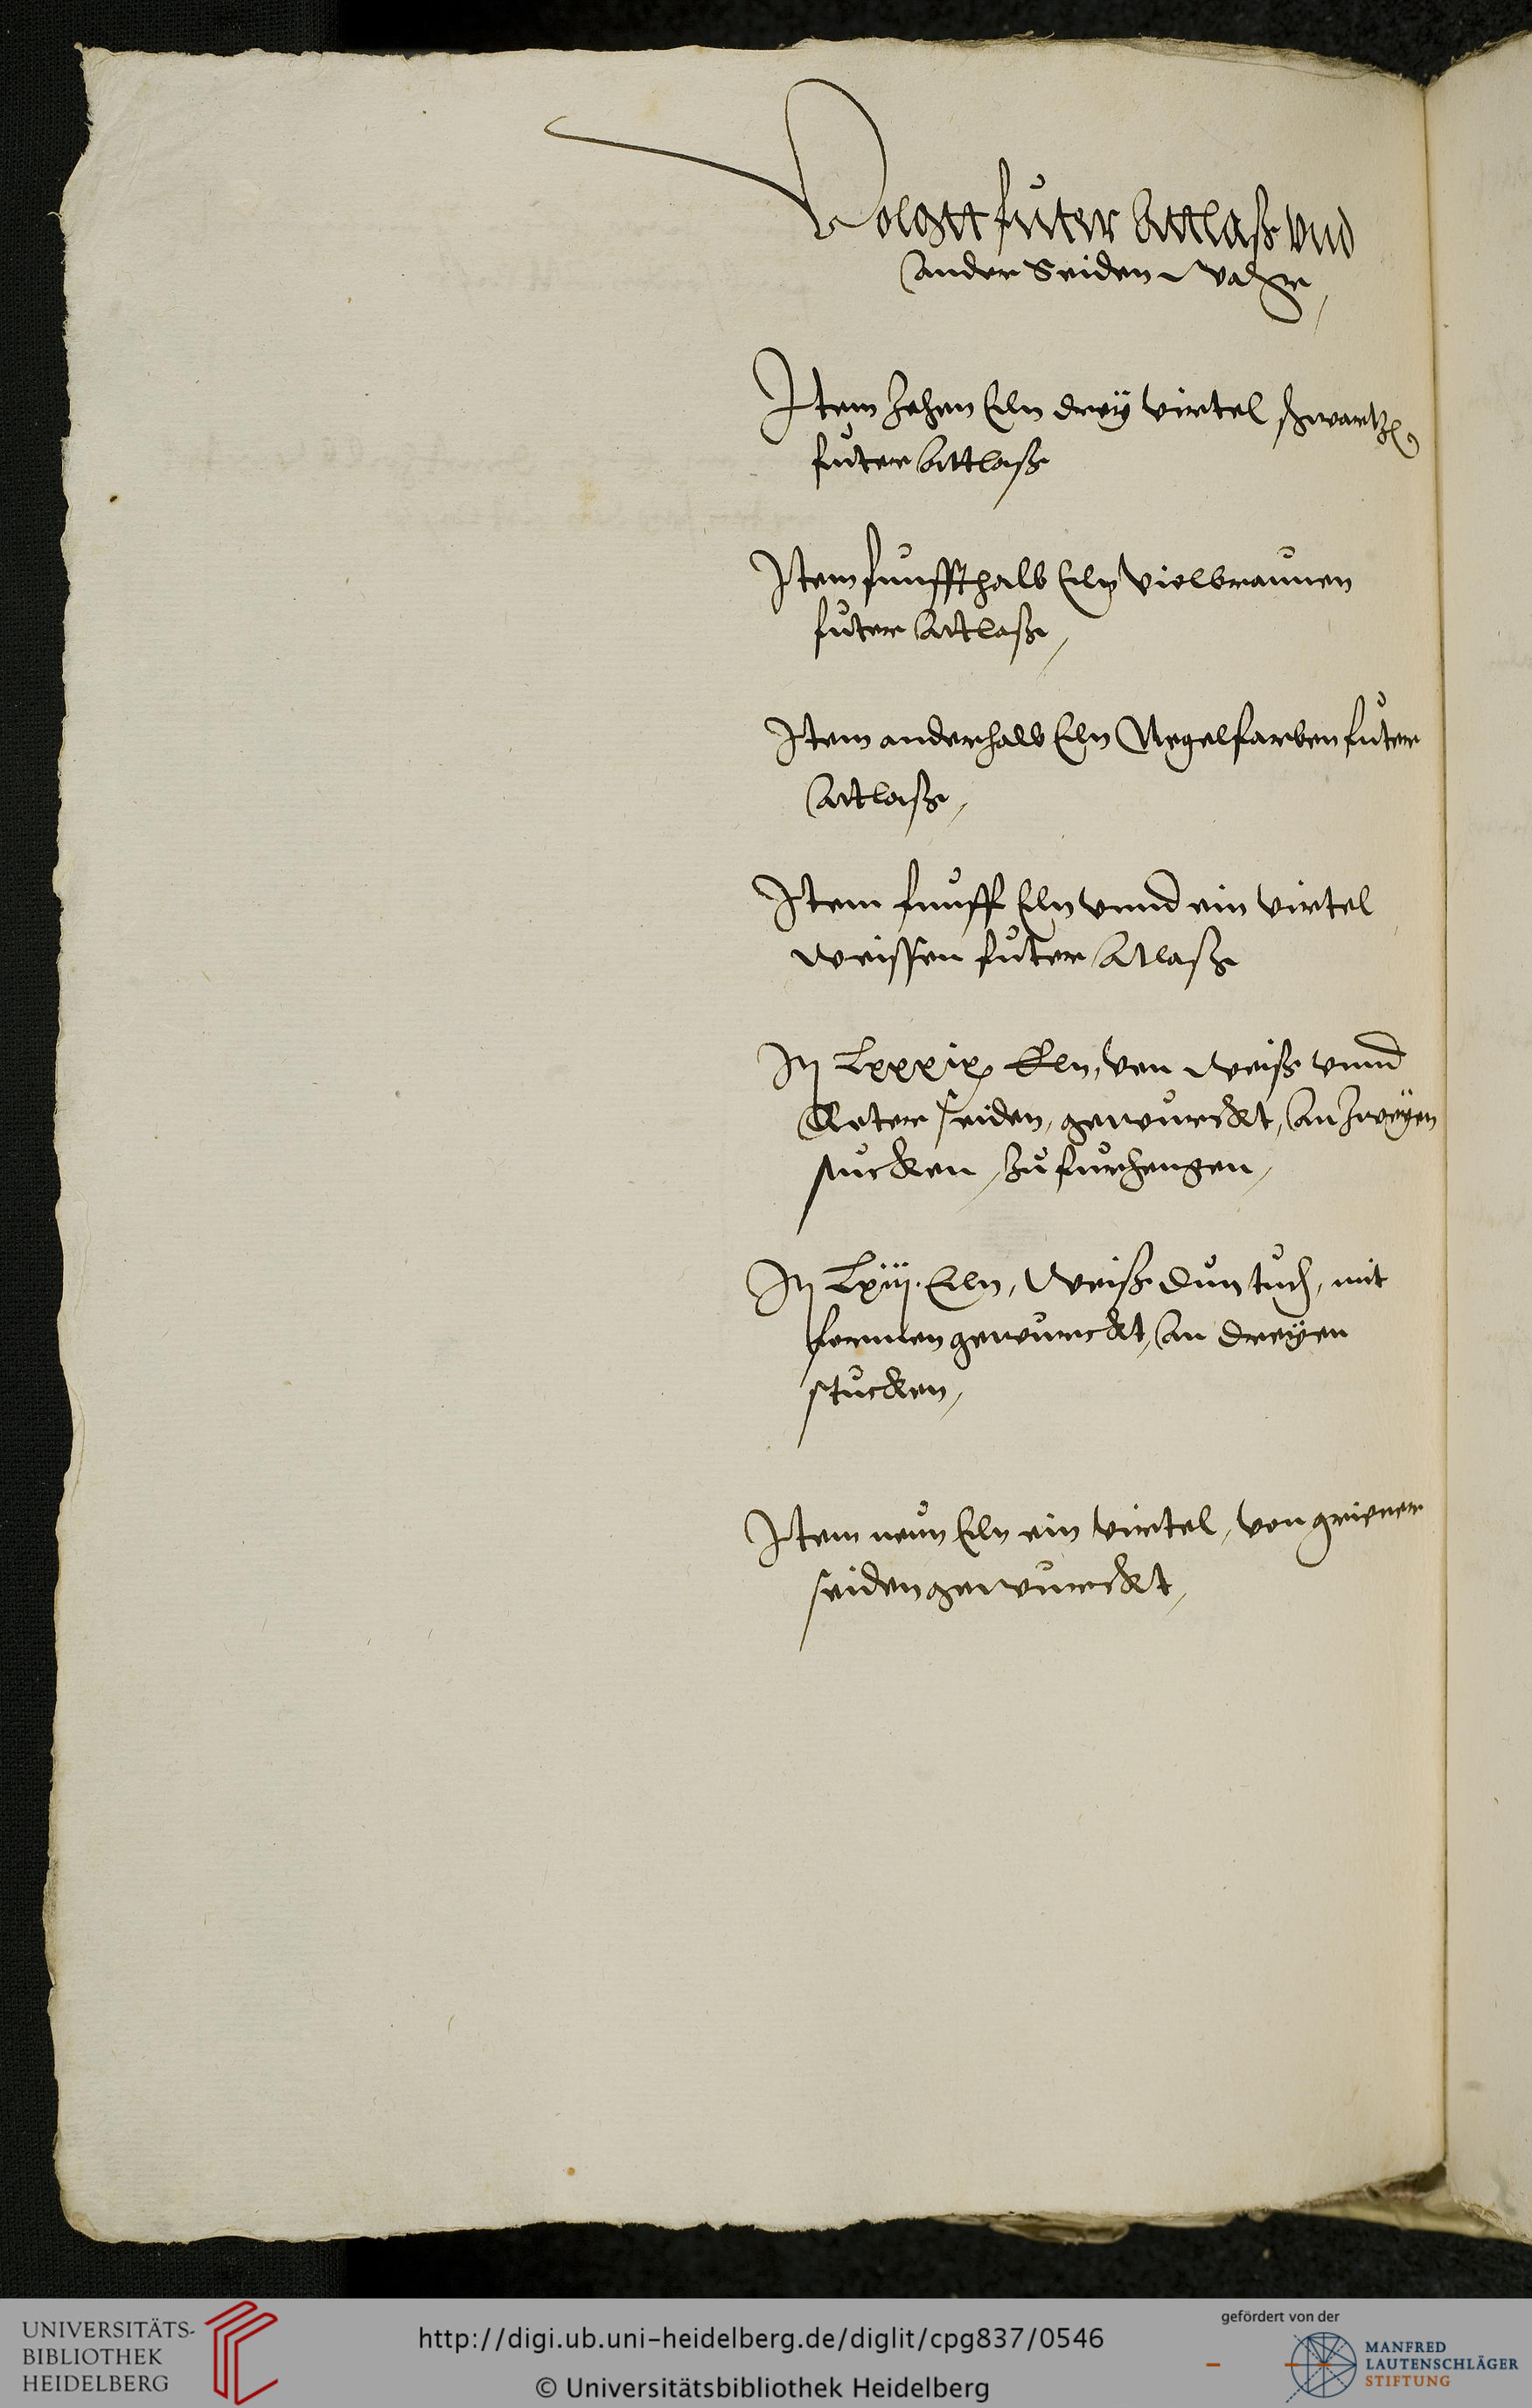 Volgtt fůter Attlaß vnd
ander Seiden Wahr,
Item Zehen Eeln dreÿ virtel schwartzen
fůter Attlaß
Item funffthalb Eeln Vielbraunen
fůter Attlaß,
Item anderhalb Eeln Negelfarben fůter
Attlaß,
Item funff Eeln vnnd ein virtel
weissen fůter Atlaß
Itm Lxxxix Eln, von weiß vnnd
Roter seiden, gewurckt, an zweÿen
stucken, Zů furhengen,
Itm Lxiij. Eeln, Weiß dun tuch, mit
formen gewurckt, an dreÿen
stucken,
Item neun Eeln ein virtel, von griener
seiden gewurckt,
UNIVERSITÄTS-
BIBLIOTHEK
HEIDELBERG
http://digi.ub.uni-heidelberg.de/diglit/cpg837/0546
© Universitätsbibliothek Heidelberg
gefördert von der
MANFRED
LAUTENSCHLÄGER
STIFTUNG